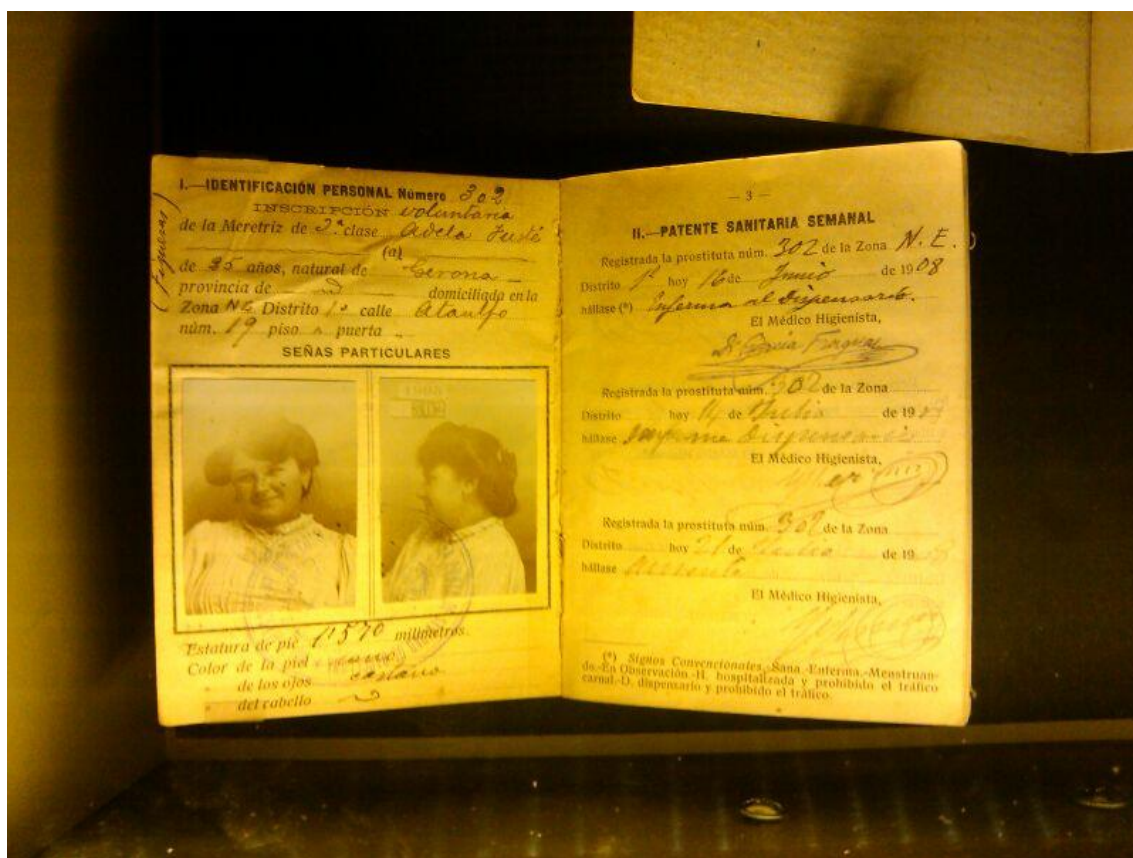 (Figueras)
I.—IDENTIFICACIÓN PERSONAL Número 302
INSCRIPCIÓN voluntaria
de la Meretriz de 2.ª clase Adela Fusté
(a)
de 35 años, natural de Gerona
provincia de domiciliada en la
Zona NE Distrito 1º calle Ataulfo
núm. 19 piso puerta
SEÑAS PARTICULARES
Estatura de pie 1'570 milímetros.
Color de la piel
de los ojos castaño
del cabello
— 3 —
II.—PATENTE SANITARIA SEMANAL
Registrada la prostituta núm. 302 de la Zona N.E.
Distrito 1º hoy 16 de Junio de 1908
hállase (*) Enferma al Dispensario.
El Médico Higienista,
Registrada la prostituta núm. 302 de la Zona
Distrito hoy 14 de Julio de 19
hállase
El Médico Higienista,
Registrada la prostituta núm. 302 de la Zona
Distrito hoy 21 de Julio de 19
hállase ausente
El Médico Higienista,
(*) Signos Convencionales.-Sana.-Enferma.-Menstruan-
do.-En Observación.-H. hospitalizada y prohibido el tráfico
carnal.-D. dispensario y prohibido el tráfico.